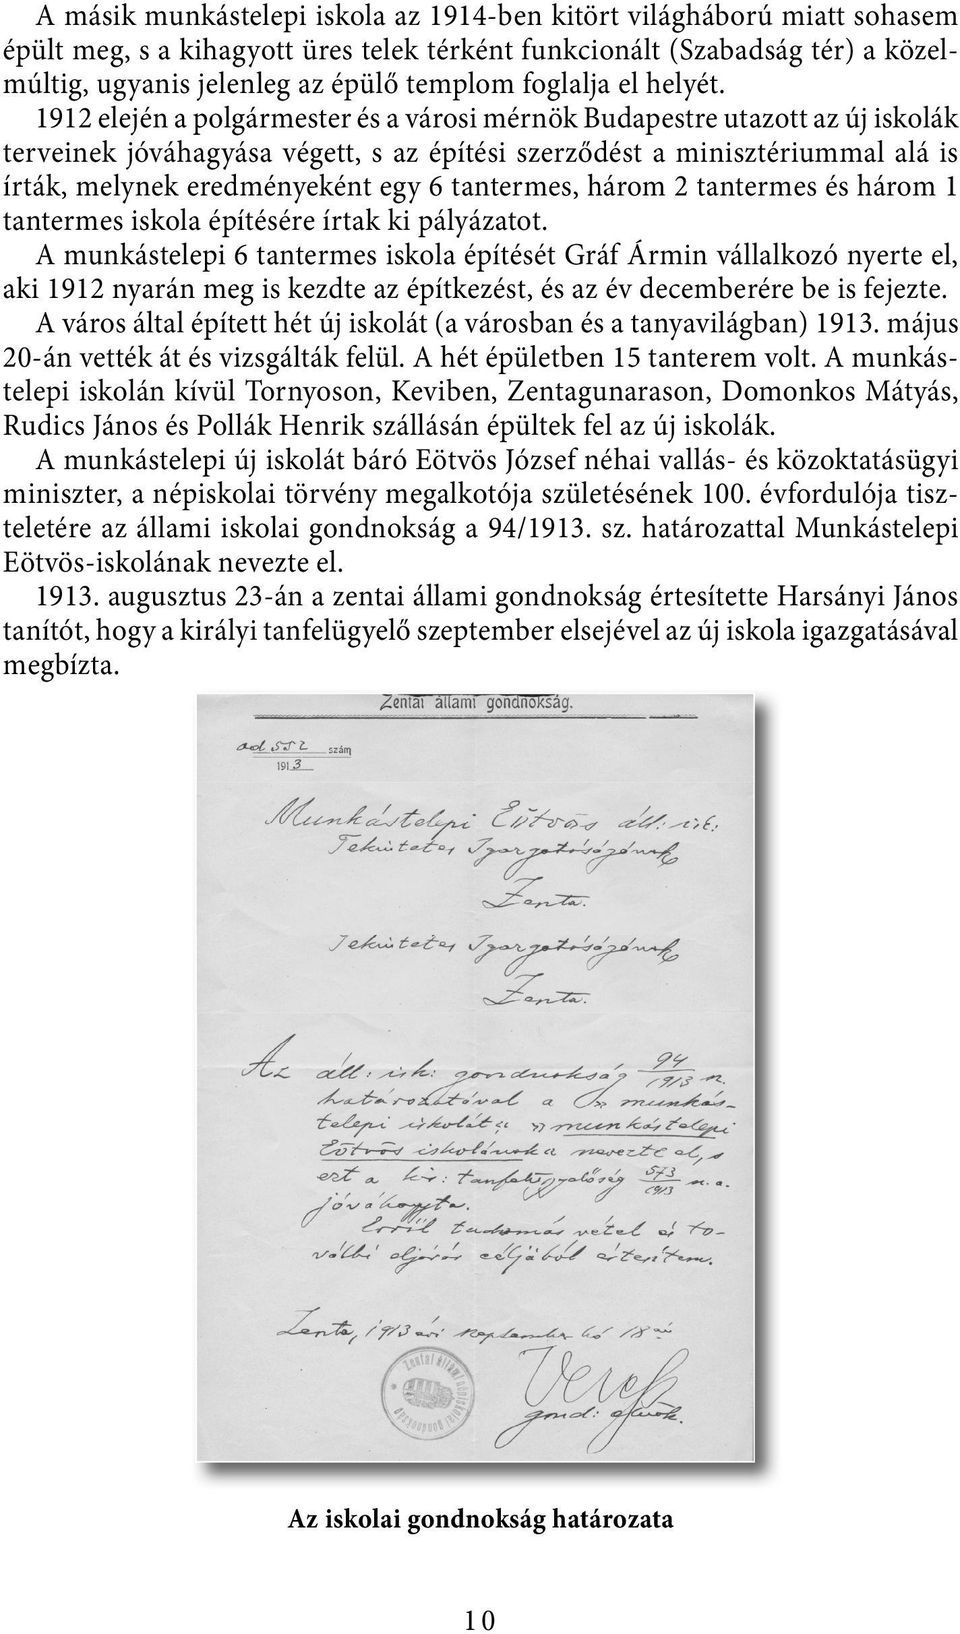 A másik munkástelepi iskola az 1914-ben kitört világháború miatt sohasem
épült meg, s a kihagyott üres telek térként funkcionált (Szabadság tér) a közel-
múltig, ugyanis jelenleg az épülő templom foglalja el helyét.
1912 elején a polgármester és a városi mérnök Budapestre utazott az új iskolák
terveinek jóváhagyása végett, s az építési szerződést a minisztériummal alá is
írták, melynek eredményeként egy 6 tantermes, három 2 tantermes és három 1
tantermes iskola építésére írtak ki pályázatot.
A munkástelepi 6 tantermes iskola építését Gráf Ármin vállalkozó nyerte el,
aki 1912 nyarán meg is kezdte az építkezést, és az év decemberére be is fejezte.
A város által épített hét új iskolát (a városban és a tanyavilágban) 1913. május
20-án vették át és vizsgálták felül. A hét épületben 15 tanterem volt. A munkás-
telepi iskolán kívül Tornyoson, Keviben, Zentagunarason, Domonkos Mátyás,
Rudics János és Pollák Henrik szállásán épültek fel az új iskolák.
A munkástelepi új iskolát báró Eötvös József néhai vallás- és közoktatásügyi
miniszter, a népiskolai törvény megalkotója születésének 100. évfordulója tisz-
teletére az állami iskolai gondnokság a 94/1913. sz. határozattal Munkástelepi
Eötvös-iskolának nevezte el.
1913. augusztus 23-án a zentai állami gondnokság értesítette Harsányi János
tanítót, hogy a királyi tanfelügyelő szeptember elsejével az új iskola igazgatásával
megbízta.
Zentai állami gondnokság.
ad 552 szám
1913
Munkástelepi Eötvös áll: isk:
Tekintetes Igazgatóságának
Zenta.
Tekintetes Igazgatóságának
Zenta.
Az áll: isk: gondnokság 94/1913 n.
határozatával a » munkás-
telepi iskolát « » munkástelepi
Eötvös iskolának a nevezte el, s
ezt a kir: tanfelügyelőség 573/1913 n. a.
jóváhagyta.
Erről tudomás vétel és to-
vábbi eljárás céljából értesítem.
Zenta, 1913 évi szeptember hó 18 án
Zentai állami népiskolai gondnokság
gond: elnök.
Az iskolai gondnokság határozata
10